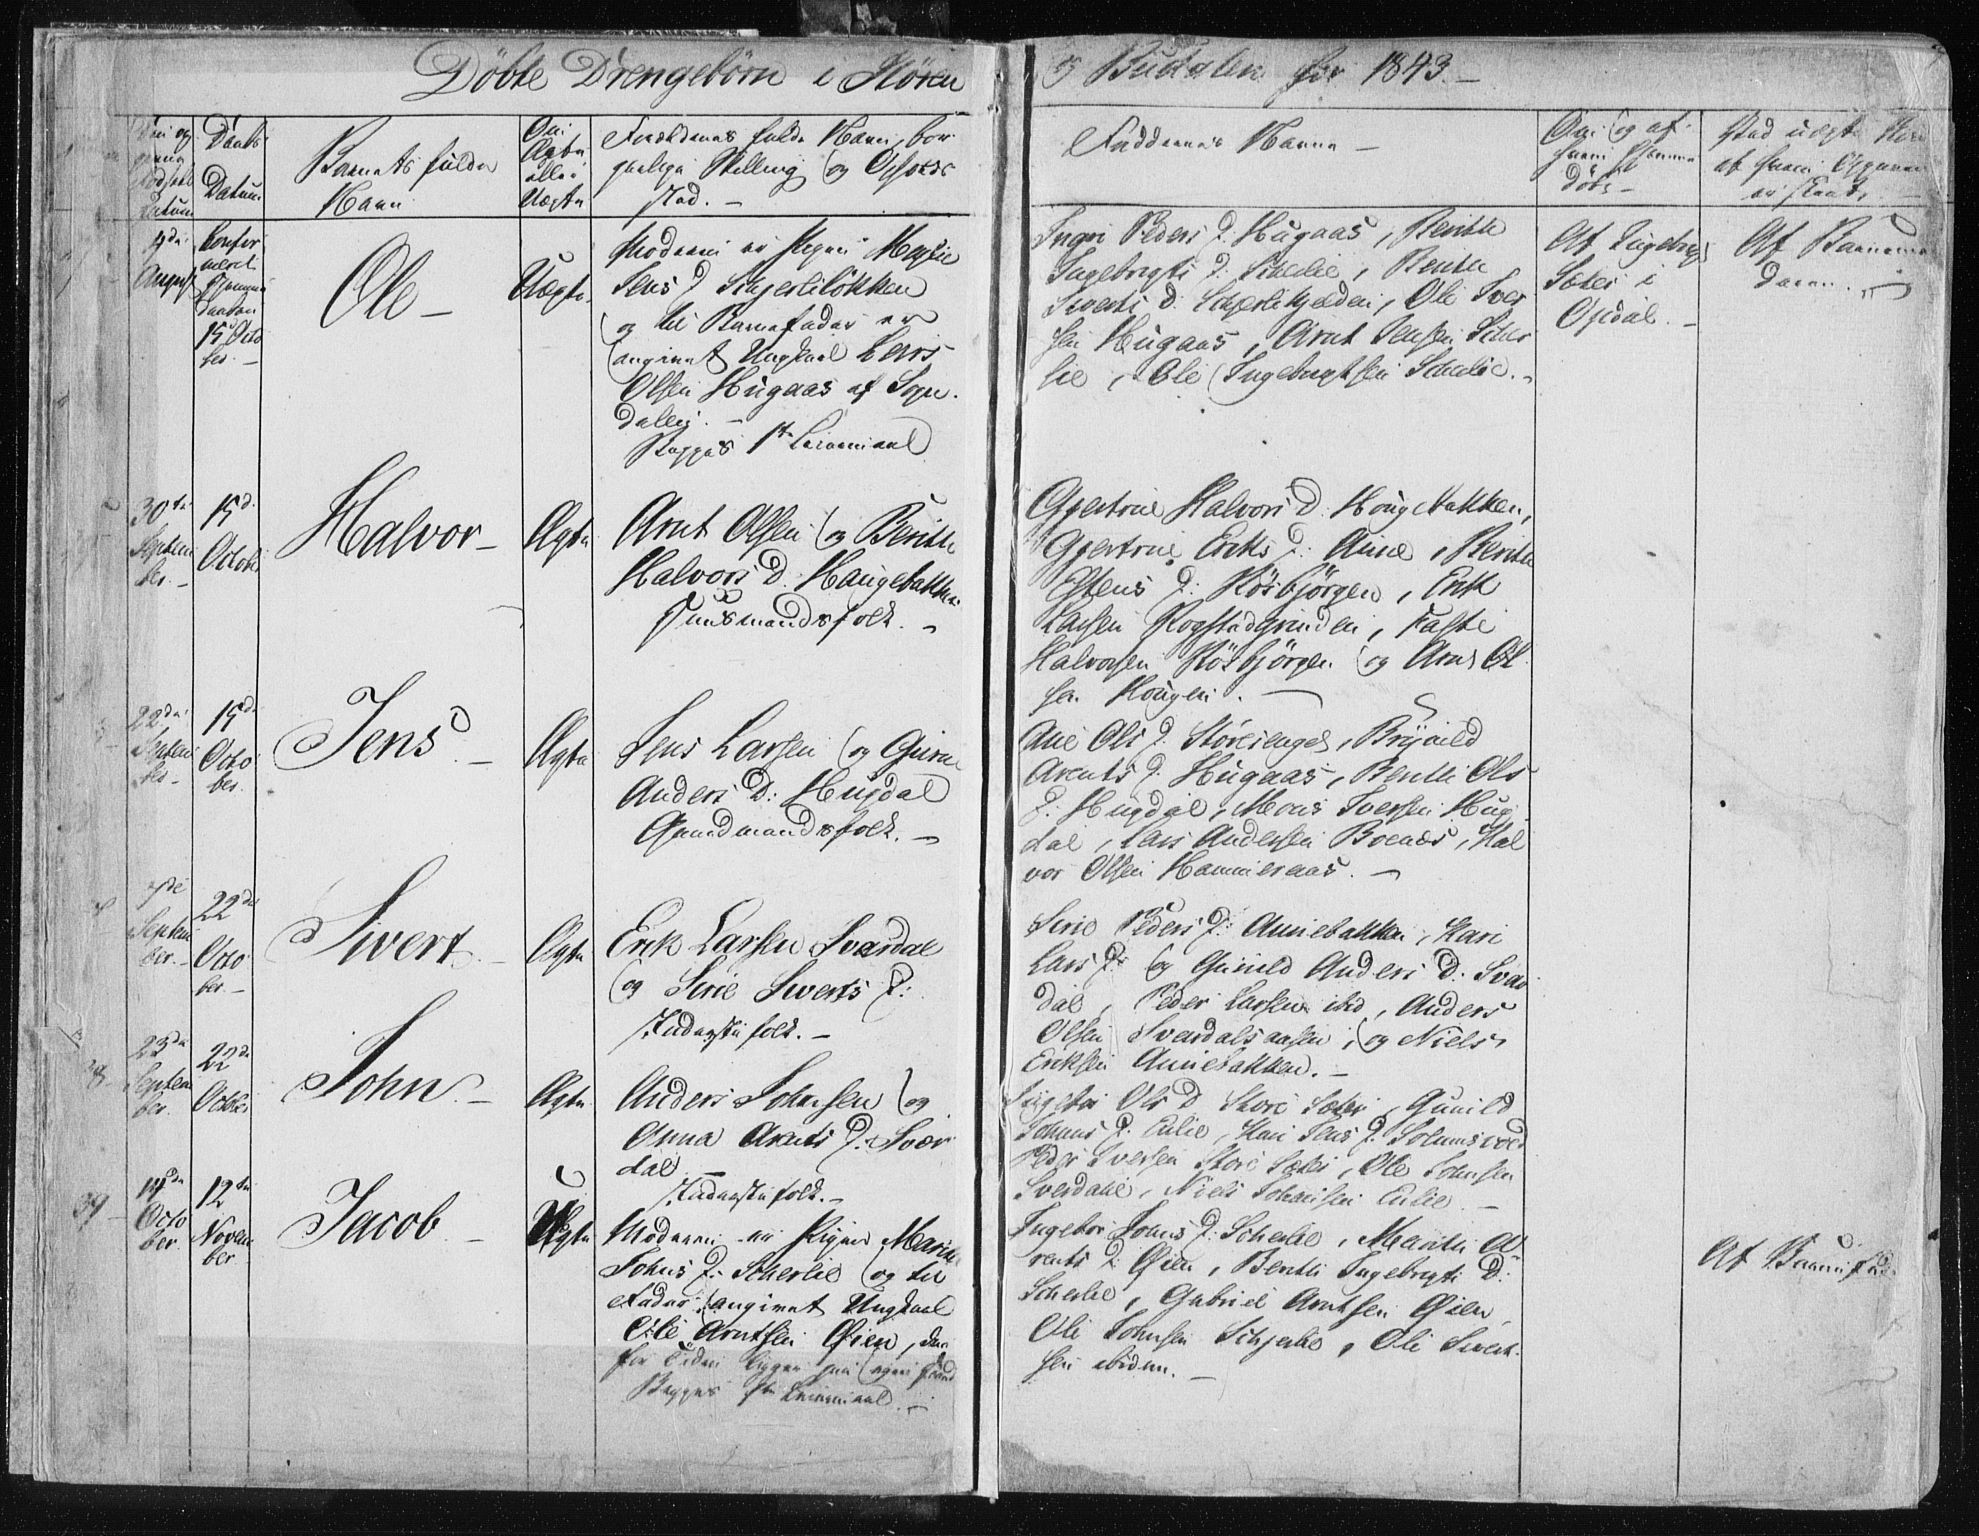 Döbte Drengebørn i Støren
og Budalen for 1843.
Daabs Datum
Barnets fulde Navn
Om Ægte eller Uægte
Forældrenes fulde Navn, bor-
gerlige Stilling og Opholds
sted. –
Faddernes Navne –
Om og af
hvem hjemme
döbt –
af hvem Opgaven
er skeet. –
4de
August
Confir
meret
Hjemme
daaben
15 Octo
ber. –
Ole –
Uægte
Moderen er Pigen
Jens D. Schjerliløkken
og til Barnefader er
angivet Ungkarl Lars
Olsen Hugaas af Sogne-
dalen. –
Begges 1ste Leiermaal
Ingri Peders D. Hugaas, Berith
Ingebrigts D. Scherlie, Berith
Siverts D. Scherlie, Ole Iver
sen Hugaas, Arnt Jensen Scher
lie, Ole Ingebrigtsen Scherlie. –
Af Ingebrigt
Sæter i
Opdal. –
Af Barnemo
deren. –
30te
Septem
ber. –
15d.
October
Halvor –
Ægte
Arnt Olsen og Berith
Halvors D. Haugebakken
Huusmandsfolk. –
Gjertrue Halvors D. Hougebakken,
Gjertrue Eriks D: Aune, Berith
Estens D: Kösbjörgen, Erik
Larsen Rogstadgrinden, Faste
Halvorsen Kösbjörgen og Arnt Ol
sen Hougen. –
22de
Septem
ber –
15de
Octo
ber.
Jens. –
Ægte
Jens Larsen og Guru
Anders D: Hugdal
Gaardmandsfolk. –
Ane Ols D. Störeienget, Brynild
Arents D. Hugaas, Berith Ols
D. Hugdal, Mons Iversen Hug
dal, Lars Andersen Boenæs, Hal
vor Olsen Hammeraas. –
7de
Septem
ber. –
22de
Octo
ber. –
Sivert. –
Ægte
Erik Larsen Svardal
og Sirie Siverts D:
Inderstefolk. –
Sirie Peders D: Aunebakken, Kari
Lars D: og Gunild Anders D. Svar
dal, Peder Larsen ibid, Anders
Olsen Svardalsaasen, og Niels
Eriksen Aunebakken. –
38
23de
Septem
ber.
22de
October
John. –
Ægte
Anders Johnsen og
Anna Arnts D. Svær
dal –
Inderstefolk. –
Ols D Store Sæter, Gunild
Johns D. Enlie, Kari Jens D. Solumsvold
Peder Iversen Store Sæter, Ole Johnsen
Sverdalie, Niels Johnsen Enlie. –
39
14de
Octo
ber.
12te
Novem
ber
Jacob –
Uægte
Moderen er Pigen Marith
Johns D. Scherlie og til
Fader angivet Ungkarl
Ole Arntsen Øien, der
for Tiden ligger
Begges 1ste Leiermaal. –
Ingebor Johns D. Scherlie, Marith A
rents D. Øien, Berith Ingebrigts D:
Scherlie, Gabriel Arntsen Øien,
Ole Johnsen Schjerlie, Ole Sivert
sen ibidem. –
Af Barnefad.